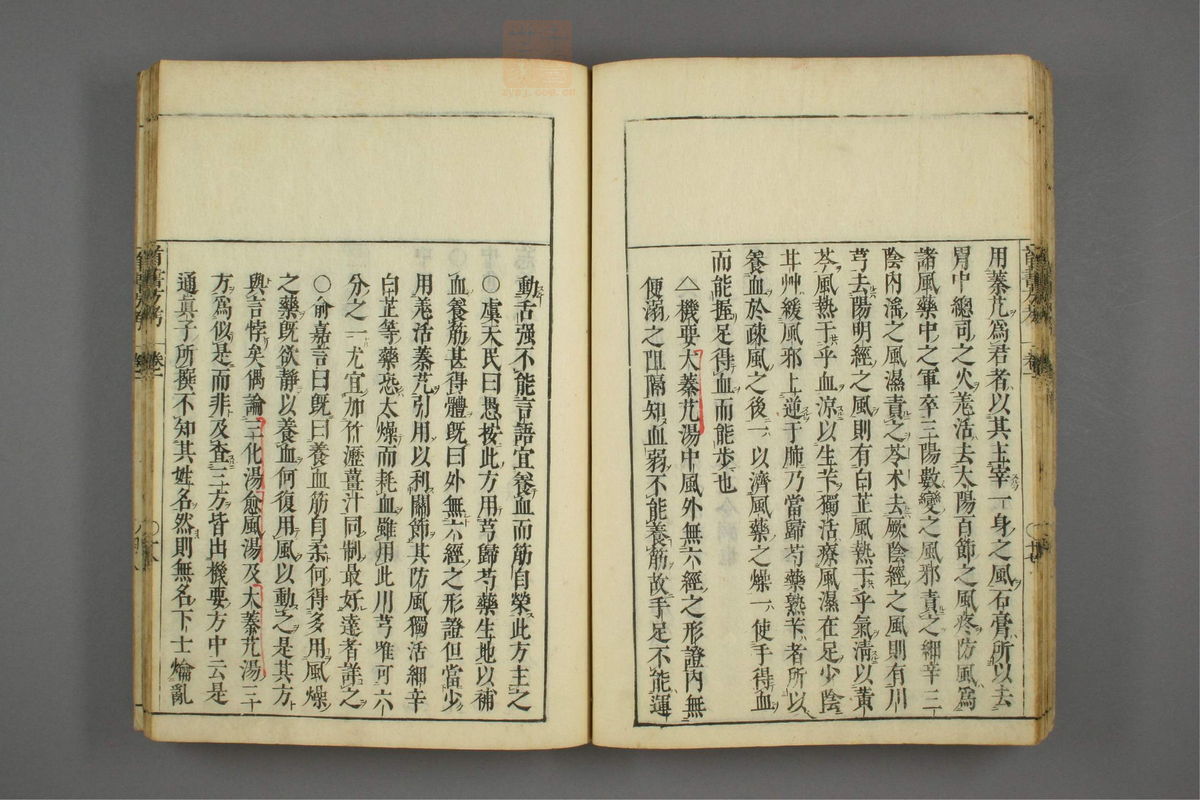 用蓁艽爲君者以其主宰一身之風石膏所以去
胃中總司之火羗活去太陽百節之風疼防風爲
諸風藥中之軍卒三陽數變之風邪責之細辛三
陰內滛之風濕責之苓术去厥陰經之風則有川
芎去陽明經之風則有白芷風熱于乎氣清以黃
芩風熱于乎血凉以生苄獨活療風濕在足少陰
甘艸緩風邪上逆于肺乃當歸芍藥熟苄者所以
養血於疎風之後一以濟風藥之燥一使手得血
而能握足得血而能步也
△機要大蓁艽湯中風外無六經之形證內無
便溺之阻隔知血弱不能養筋故手足不能運
動舌强不能言語宜養血而筋自榮此方主之
○虞天民曰愚按此方用芎歸芍藥生地以補
血養筋甚得體既曰外無六經之形證但當少
用羗活蓁艽引用以利關節其防風獨活細辛
白芷等藥恐太燥而耗血雖用此川芎唯可六
分之一尤宜加竹瀝薑汁同制最好達者詳之
○俞嘉言曰既曰養血筋自柔何得多用風燥
之藥既欲靜以養血何復用風以動之是其方
與言悖矣偶論三化湯愈風湯及大蓁艽湯三
方爲似是而非及查三方皆出機要方中云是
通眞子所撰不知其姓名然則無名下士煽亂
卷一